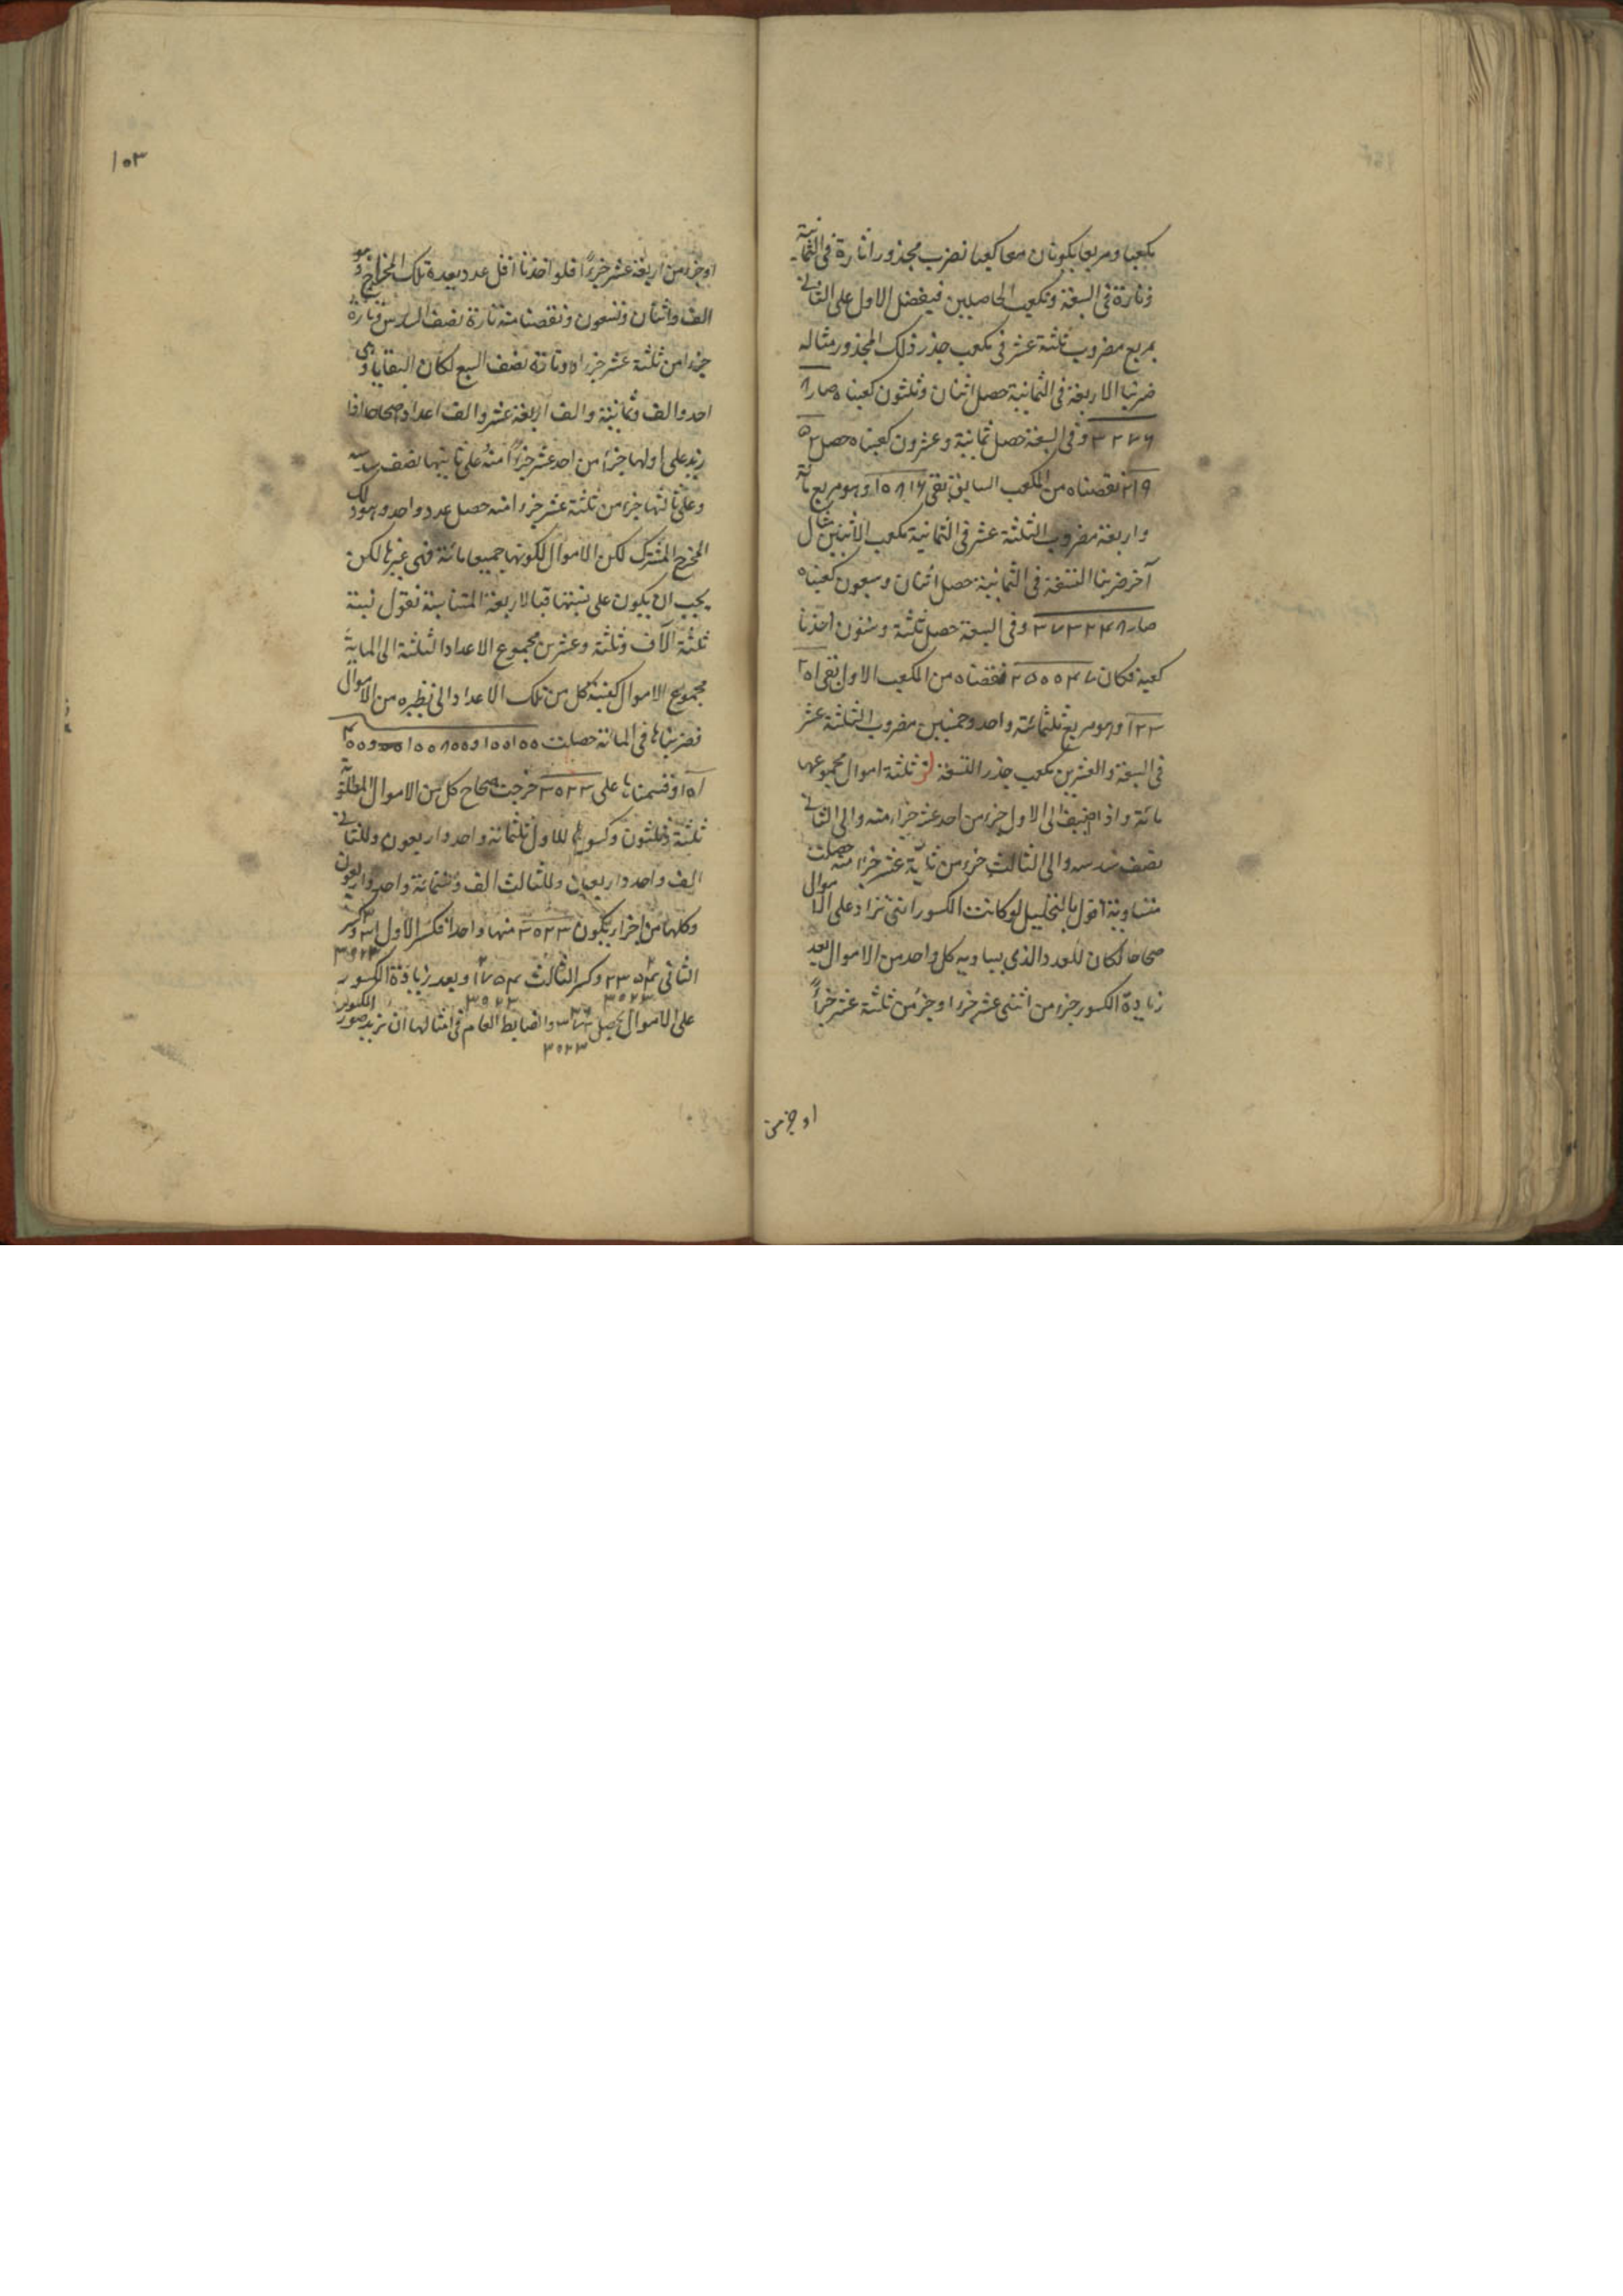 مكعبا ومربعا يكونان معا كعبا نضرب مجذورا تارة فى الثمانية
وتارة فى السبعة ونكعب الحاصلين فيفضل الاول على الثانى
بمربع مضروب ثلثة عشر فى مكعب جذر ذلك المجذور مثاله
ضربنا الاربعة فى الثمانية حصل اثنان وثلثون كعبناه صار ٨
٣٢٧٦ وفى السبعة حصل ثمانية وعشرون كعبناه حصل ٢
٢١٩ نقصناه من المكعب السابق بقى ١٠٨١٦ وهو مربع مائة
واربعة مضروب الثلثة عشر فى الثمانية مكعب الاثنين مثال
آخر ضربنا التسعة فى الثمانية حصل اثنان وسبعون كعبناه
صار ٣٧٣٢٤٨ وفى السبعة حصل ثلثة وستون اخذنا
كعبه فكان ٢٥٠٠٤٧ نقصناه من المكعب الاول بقى ١
١٢٣٢ وهو مربع ثلثمائة واحد وخمسين مضروب الثلثة عشر
فى السبعة والعشرين مكعب جذر التسعة ثلثة اموال مجموعها
مائة واذا اضيف الى الاول جزء من احد عشر جزءا منه والى الثانى
نصف سدسه والى الثالث جزء من ثلثة عشر جزءا منه حصلت
متساوية اقول بالتحليل لو كانت الكسور التى تزاد على الاموال
صحاحا لكان للعدد الذى يساويه كل واحد من الاموال بعد
زيادة الكسور جزء من اثنى عشر جزءا او جزء من ثلثة عشر جزءاً
او جزء من
١٠٣
او جزء من اربعة عشر جزءاً فلو اخذنا اقل عدد يعده تلك المخارج وهو
الف واثنان وتسعون ونقصنا منه تارة نصف السدس وتارة
جزءا من ثلثة عشر جزءا وتارة نصف السبع لكان البقايا وهى
احد والف وثمانية والف اربعة عشر والف اعداد صحاحا اذا
زيد على اولها جزء من احد عشر جزءاً منه وعلى ثانيها نصف سدسه
وعلى ثالثها جزء من ثلثة عشر جزءا منه حصل عدد واحد وهو ذلك
المخرج المشترك لكن الاموال لكونها جميعا مائة فهى غيرها لكن
يجب ان يكون على نسبتها فبالاربعة المتناسبة نقول نسبة
ثلثة آلاف وثلثة وعشرين مجموع الاعداد الثلثة الى المائة
مجموع الاموال كنسبة كل من تلك الاعداد الى نظيره من الاموال
فضربناها فى المائة حصلت ١٠٠١٠٠ و١٠٠٨٠٠ و
١٠١٤٠٠ وقسمناها على ٣٠٢٣ خرجت صحاح كل من الاموال المطلوبة
ثلثة وثلثون وكسورها للاول ثلثمائة واحد واربعون وللثانى
الف واحد واربعون وللثالث الف وستمائة واحد واربعون
وكلها من اجزاء يكون ٣٠٢٣ منها واحدا فكسر الاول ٣٤١ وكسر
٣٠٢٣
الثانى وكسر الثالث وبعد زيادة الكسور
٣٠٢٣ ٣٠٢٣
على الاموال يحصل والضابط العام فى امثالها ان نزيد صور الكسور
٣٠٢٣